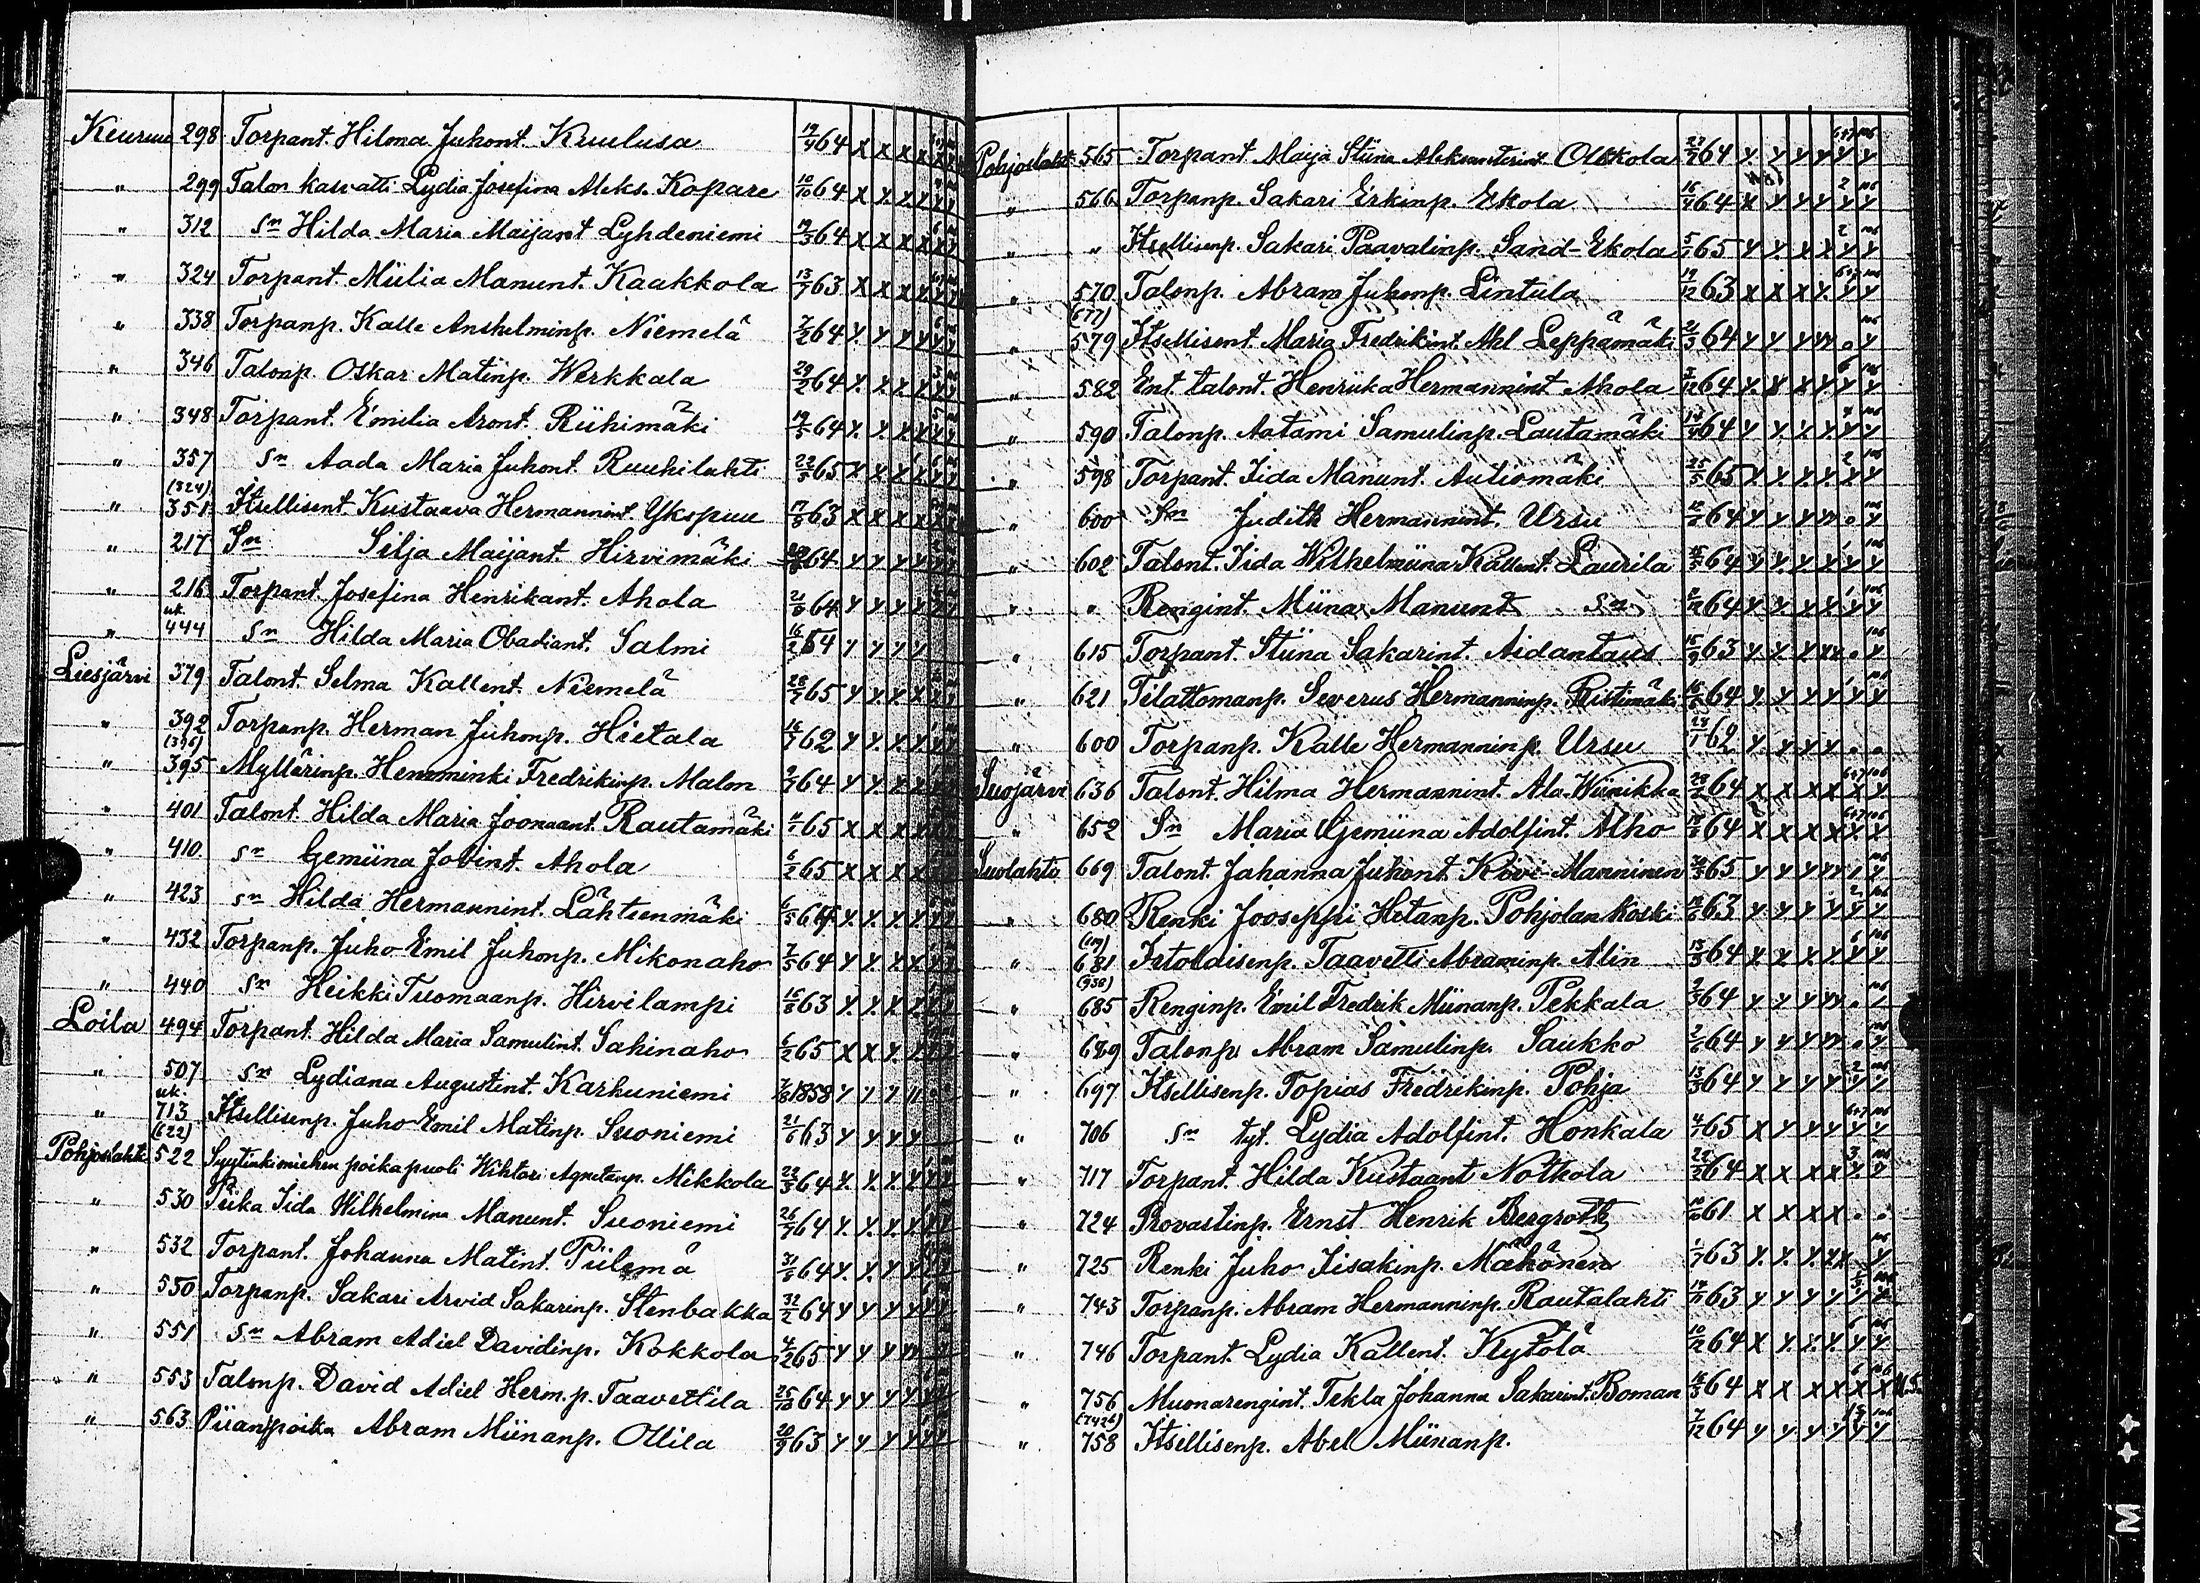 Keuruu 298 Torpant. Hilma Juhont. Kuulusa 19/4 64 x x x x x x
" 299 Talon kasvatti Lydia Josefina Aleks. Kopare 10/10 64 x x x x
" 312 Sn Hilda Maria Maijant Lyhdeniemi 19/3 64 x x x x
" 324 Torpant. Miilia Manunt. Kaakkola 13/7 63 x x x x
" 338 Torpanp. Kalle Anshelminp. Niemelä 7/2 64 y y y y
" 346 Talonp. Oskar Matinp. Werkkala 29/2 64 x x x x
" 348 Torpant. Emilia Aront. Riihimäki 19/5 64 y y x x
" 357 Sn Aada Maria Juhont. Ruuhilahti 22/5 65 x x x x
(324)
" 351 Itsellisent Kustaava Hermannint. Ykspuu 17/8 63 x x x x
" 217 Sn Silja Maijant. Hirvimäki 64 y y y y
" 216 Torpant. Josefina Henrikant. Ahola 64 y y y y
uk.
" 444 Sn Hilda Maria Obadiant. Salmi 16/2 64 y y y y
Liesjärvi 379 Talont. Selma Kallent. Niemelä 28/7 65 y y y x
" 392 Torpanp. Herman Juhonp. Hietala 16/7 62 y y y y
(396)
" 395 Myllärinp. Hemminki Fredrikinp. Malon 64 y y x x
" 401 Talont. Hilda Maria Joonaant. Rautamäki 65 x x x x
" 410 Sn Gemiina Jobint. Ahola 6/2 65 x x x x
" 423 Sn Hilda Hermannint. Lähteenmäki 6/5 64 y y y y
" 432 Torpanp. Juho Emil Juhonp. Mikonaho 7/5 64 y y x x
" 440 Sn Heikki Tuomaanp. Hirvilampi 15/8 63 y y x x
Loila 494 Torpant. Hilda Maria Samulint. Sahinaho 6/2 65 x x y y
" 507 Sn Lydiana Augustint. Karhuniemi 1858 y y y y
uk.
" 713 Itsellisenp. Juho Emil Matinp. Suoniemi 21/6 63 y y y y
(622)
Pohjoslahti 522 Syytinkimiehen poikapuoli Wihtori Agnetanp. Mikkola 22/3 64 y y y y
" 530 Piika Iida Wilhelmina Manunt. Suoniemi 26/9 64 y y y y
" 532 Torpant. Johanna Matint. Piilemä 31/5 64 y y y y
" 550 Torpanp. Sakari Arvid Sakarinp. Stenbakka 64 y y y y
" 551 Sn Abram Adiel Davidinp. Kokkola 4/2 65 y y y y
" 553 Talonp. David Adiel Herm.p. Taavettila 25/10 64 y y y y
" 563 Piianpoika Abram Miinanp. Ollila 20/9 63 y y y y
Pohjoslaht. 565 Torpant Maija Stiina Aleksanterint Olkkola 64 y y y y y y
" 566 Torpanp. Sakari Erkinp. Ekola 16/4 64 x y y y y y
" " Itsellisenp. Sakari Paavalinp. Sand-Ekola 65 y y x x y y
" 570 Talonp. Abram Juhonp. Lintula 19/12 63 x x x x y y
(577)
" 579 Itsellisent. Maria Fredrikint. Ahl Leppämäki 21/3 64 y y y y o y
" 582 Ent. talont. Henriika Hermannint Ahola 64 y y x y y y
" 590 Talonp. Aatami Samulinp. Lautamäki 64 y y y y y y
" 598 Torpant. Iida Manunt. Autiomäki 25/5 65 y y y y y y
" 600 Sn Judith Hermannint. Ursu 64 y y y y o y
" 602 Talont. Iida Wilhelmiina Kallent. Laurila 64 y y y x y y
" " Rengint. Miina Manunt Sn 64 y y y y y y
" 615 Torpant. Stiina Sakarint. Aidantaus 15/9 63 y y y x o y
" 621 Tilattomanp. Severus Hermanninp. Ristimäki 64 y y y y y y
" 600 Torpanp. Kalle Hermanninp. Ursu 62 y y y y o o
Suojärvi 636 Talont. Hilma Hermannint. Ala-Wiinikka 64 x x x x x y
" 652 Sn Maria Gemiina Adolfint. Alho 64 x x x x x x
Suolahti 669 Talont. Johanna Juhont. Kivi-Manninen 65 y y y y y
" 680 Renki Jooseppi Hetanp. Pohjolankoski 63 y y y y y y
" 681 Irtolaisenp. Taavetti Abraminp. Alin 13/3 64 x x x x y y
(938)
" 685 Renginp. Emil Fredrik Miinanp. Pekkala 64 y y y y o
" 689 Talonp. Abram Samulinp. Saukko 2/6 64 y y y y o y
" 697 Itsellisenp. Topias Fredrikinp. Pohja 13/3 64 y y y y y y
" 706 Sn tyt. Lydia Adolfint. Honkala 65 x y y y y y
" 717 Torpant. Hilda Kustaant Notkola 22/2 64 x x x x y y
" 724 Provastinp. Ernst Henrik Bergroth 61 x x x x o o
" 725 Renki Juho Iisakinp. Mähönen 1/7 63 y y y x y
" 743 Torpanp. Abram Hermanninp. Rautalahti 63 y y y y
" 746 Torpant. Lydia Kallent. Kytölä 10/12 64 x y y y y y
" 756 Muonarengint. Tekla Johanna Sakarint. Boman 64 x x x x x x
(742b)
" 758 Itsellisenp. Abel Miinanp. 7/12 64 y y y y y y
M